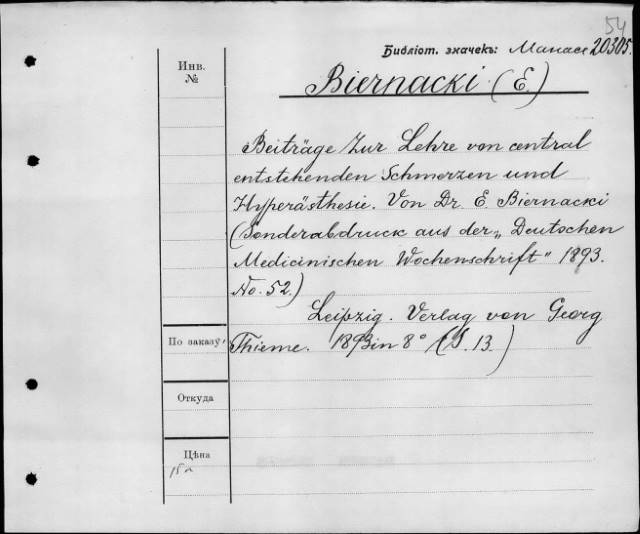 54
Библіот. значекъ: Манасе 20305.
Инв.
№
Biernacki (E.)
Beiträge zur Lehre von central
entstehenden Schmerzen und
Hyperästhesie. Von Dr. E. Biernacki
(Sonderabdruck aus der „Deutschen
Medicinischen Wochenschrift“ 1893.
No. 52.)
Leipzig. Verlag von Georg
По заказу
Thieme. 1893 in 8° (S. 13.)
Откуда
Цѣна